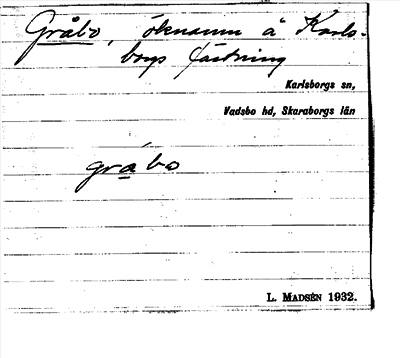 Gråbo, öknamn å Karls-
borgs fästning
Karlsborgs sn,
Vadsbo hd, Skaraborgs län
gråbo
L. Madsén 1932.